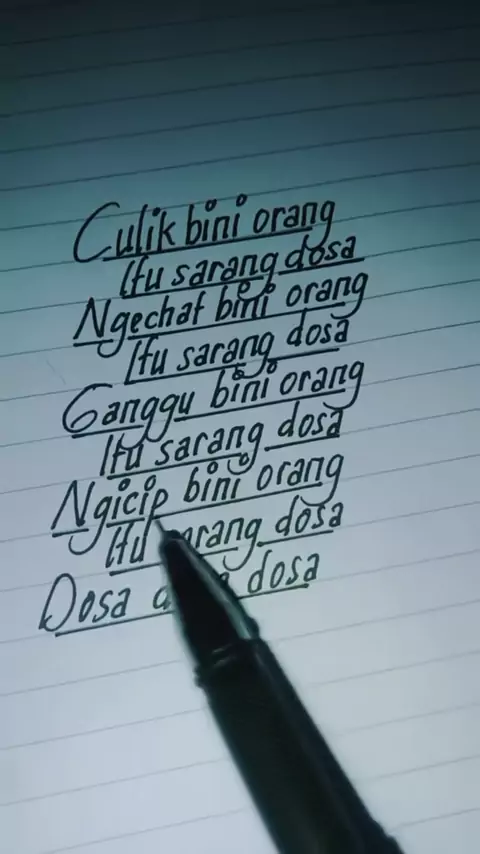 Culik bini orang
Itu sarang dosa
Ngechat bini orang
Itu sarang dosa
Ganggu bini orang
Itu sarang dosa
Ngicip bini orang
Itu sarang dosa
Dosa dosa